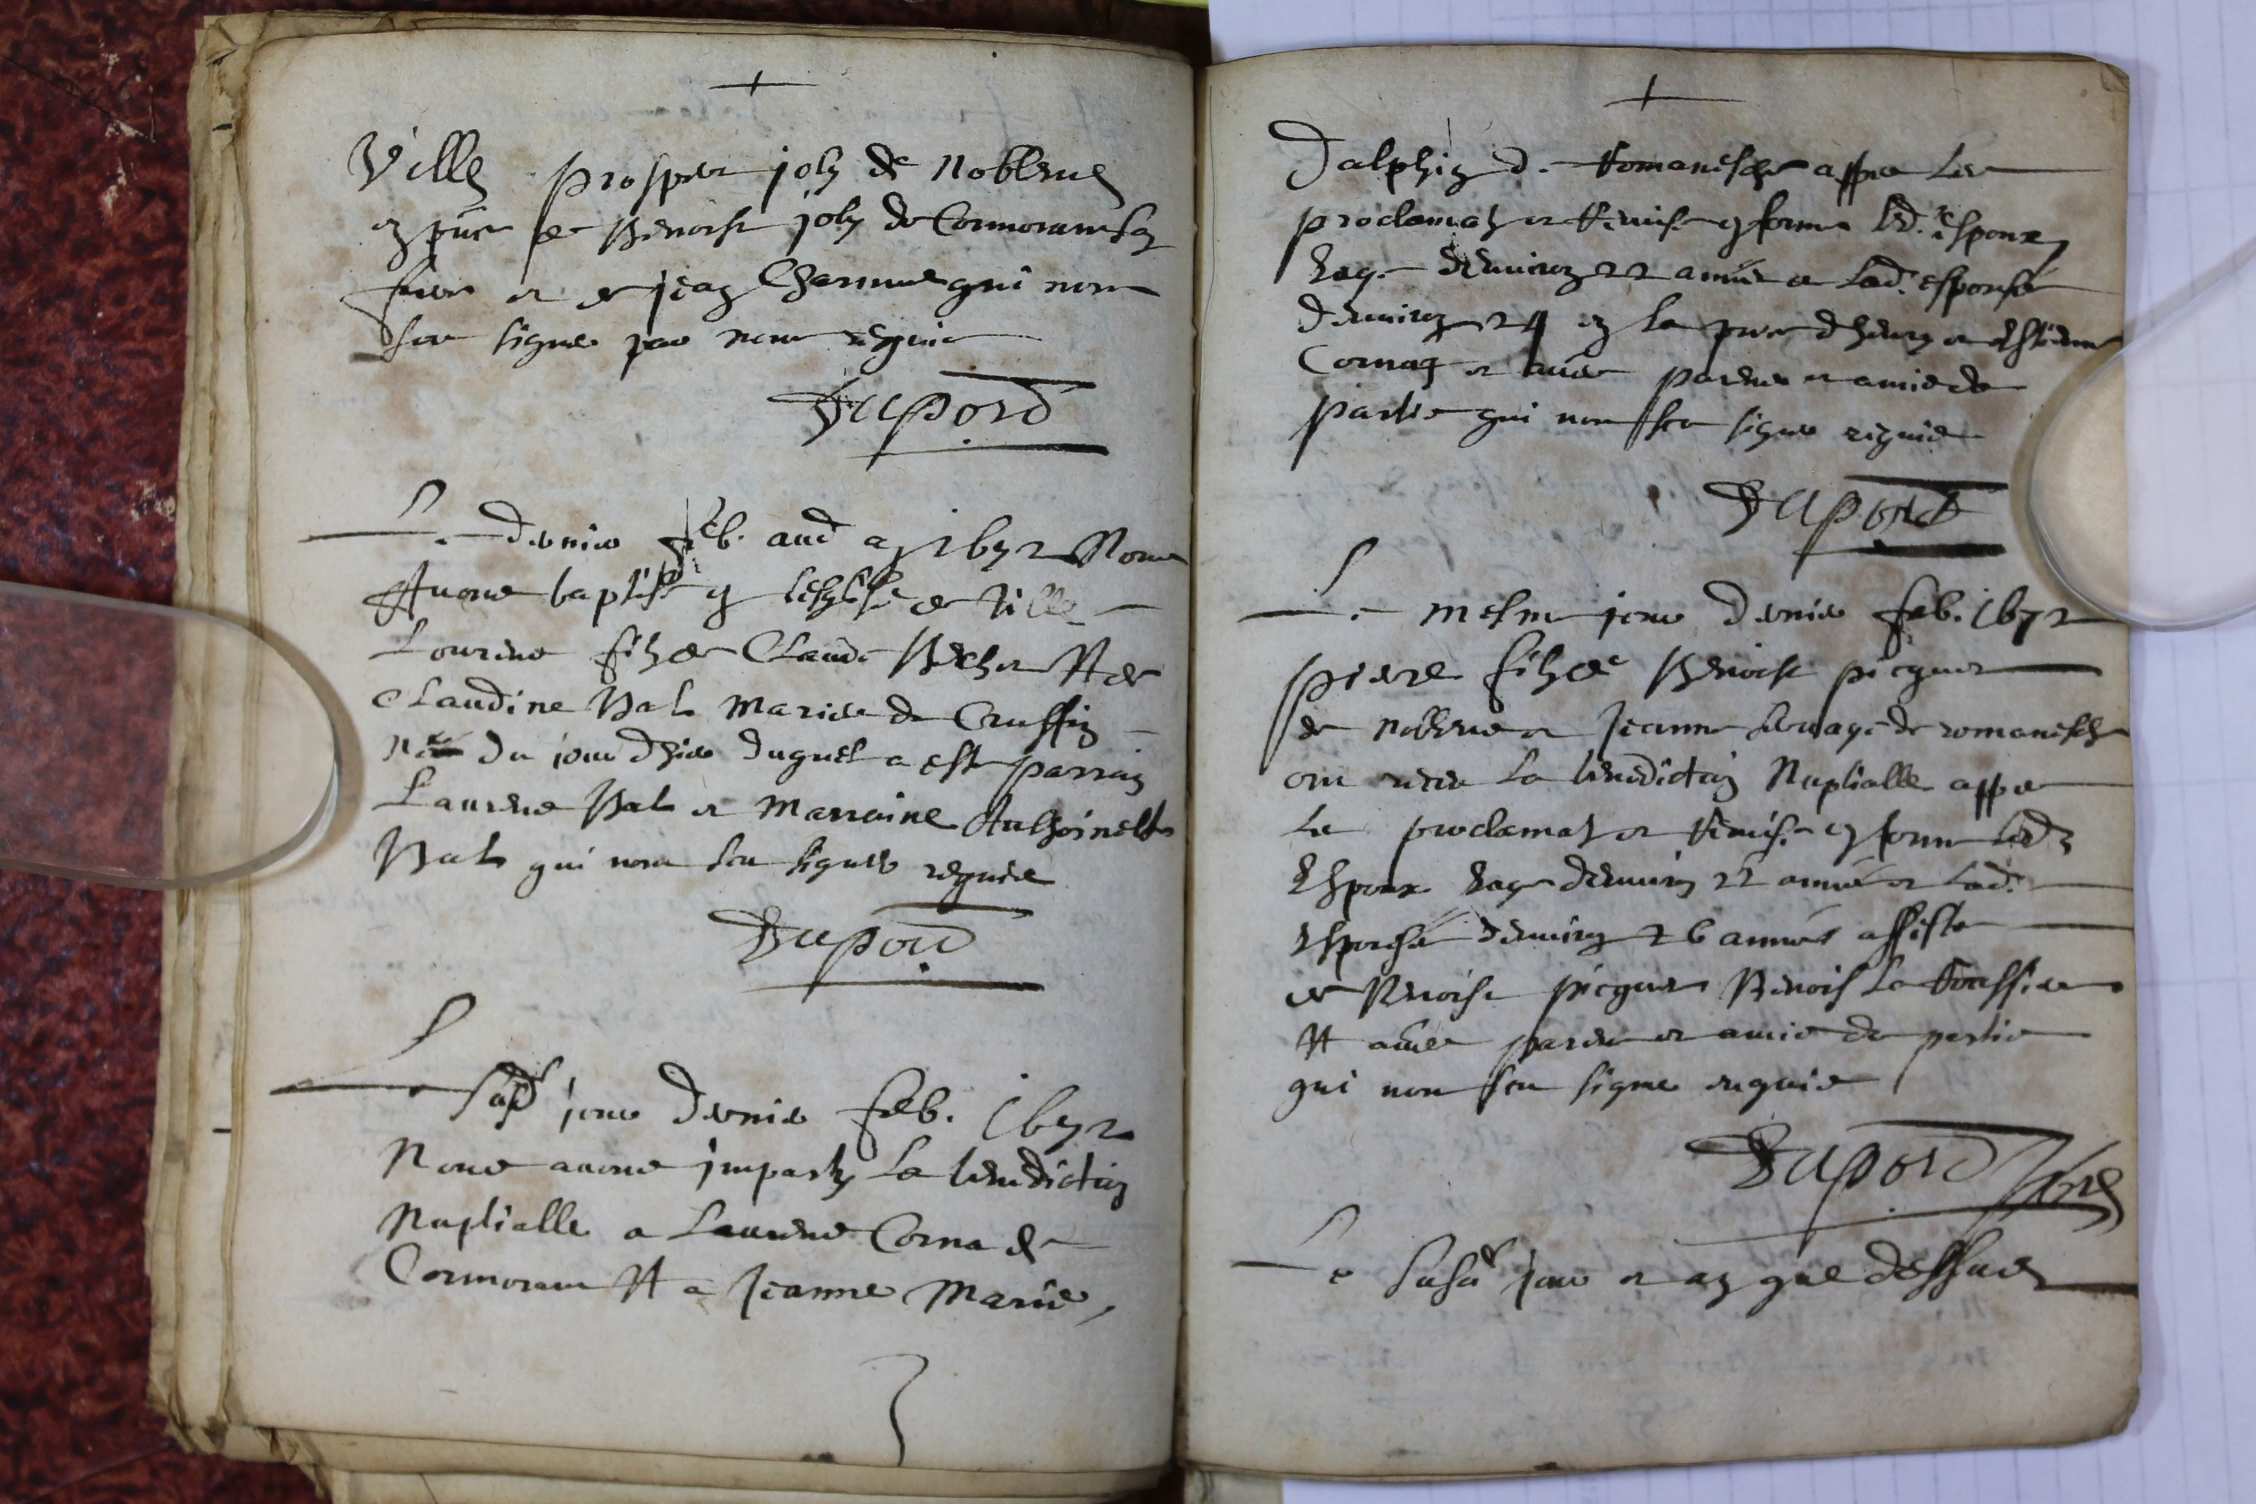 +
Ville prosper joly de noblens
en pnce de Benoist joly de Cormoranche son
frere et de jean Charnue qui nont
sceu signer par nous requis
Dupord
Le dernier feb. aud an 1672 Nous
Avons baptise en leglise de Ville
Lourens filz de Claude et de
Claudine mariee de Cruffin
du jour dhier duquel a este parrain
Laurens et Marraine Anthoinette
qui nont sceu signer requis
Dupord
Le susd jour dernier feb. 1672
Nous avons imparty la benediction
Nuptialle a Laurens Corna de
Cormoran Et a Jeanne Marie
+
Dalphin d. Romanesche appres les
proclamat et Remise en forme led. espoux
eage denviron 22 annees et lad. esponse
denviron 24 en la pnce dhenry et estienne
Cornaz et autres parens et amis de
partie qui nont sceu signer requis
Dupord
Le mesme jour dernier feb. 1672
pierre filz de Benoist picquet
de noblens et Jeanne de romanesche
ont receu la benediction Nuptialle appres
les proclamat et Remise en forme led
Espoux eage denviron 22 annees et lad.
esponse denviron 26 annees assiste
de Benoist picquet Benoist la
Et autres parens et amis de partie
qui nont sceu signe requis
Dupord
Le susd jour et an que dessus